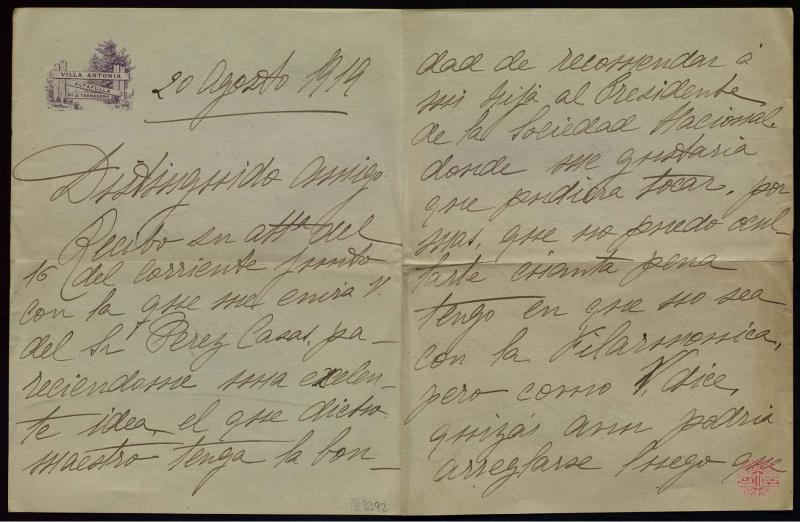 VILLA ANTONIA
ALTAFULLA
20 Agosto 1919
Distinguido amigo
Recibo su atta del
16 del corriente junto
con la que me envia V.
del Sr Perez Casas, pa-
reciendome una exelen-
te idea, el que dicho
maestro tenga la bon-
dad de recomendar á
mi hija al Presidente
de la Sociedad Nacional
donde me gustaria
que pudiera tocar, por
mas, que no puedo ocul-
tarle cuanta pena
tengo en que no sea
con la Filarmonica,
pero como V. dice,
quizás aun podria
arreglarse luego que
R.9392